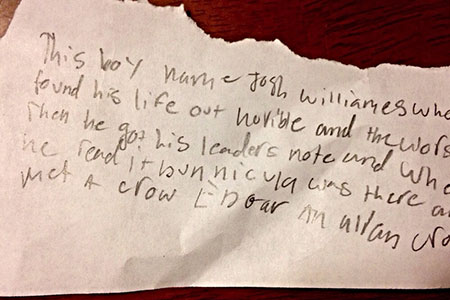 This boy name Josh williameswhe
found his life out horible and theWors
Then he got his leaders note and Whe
he read it bunnicula was there a
met A crow Edgar An allan cro